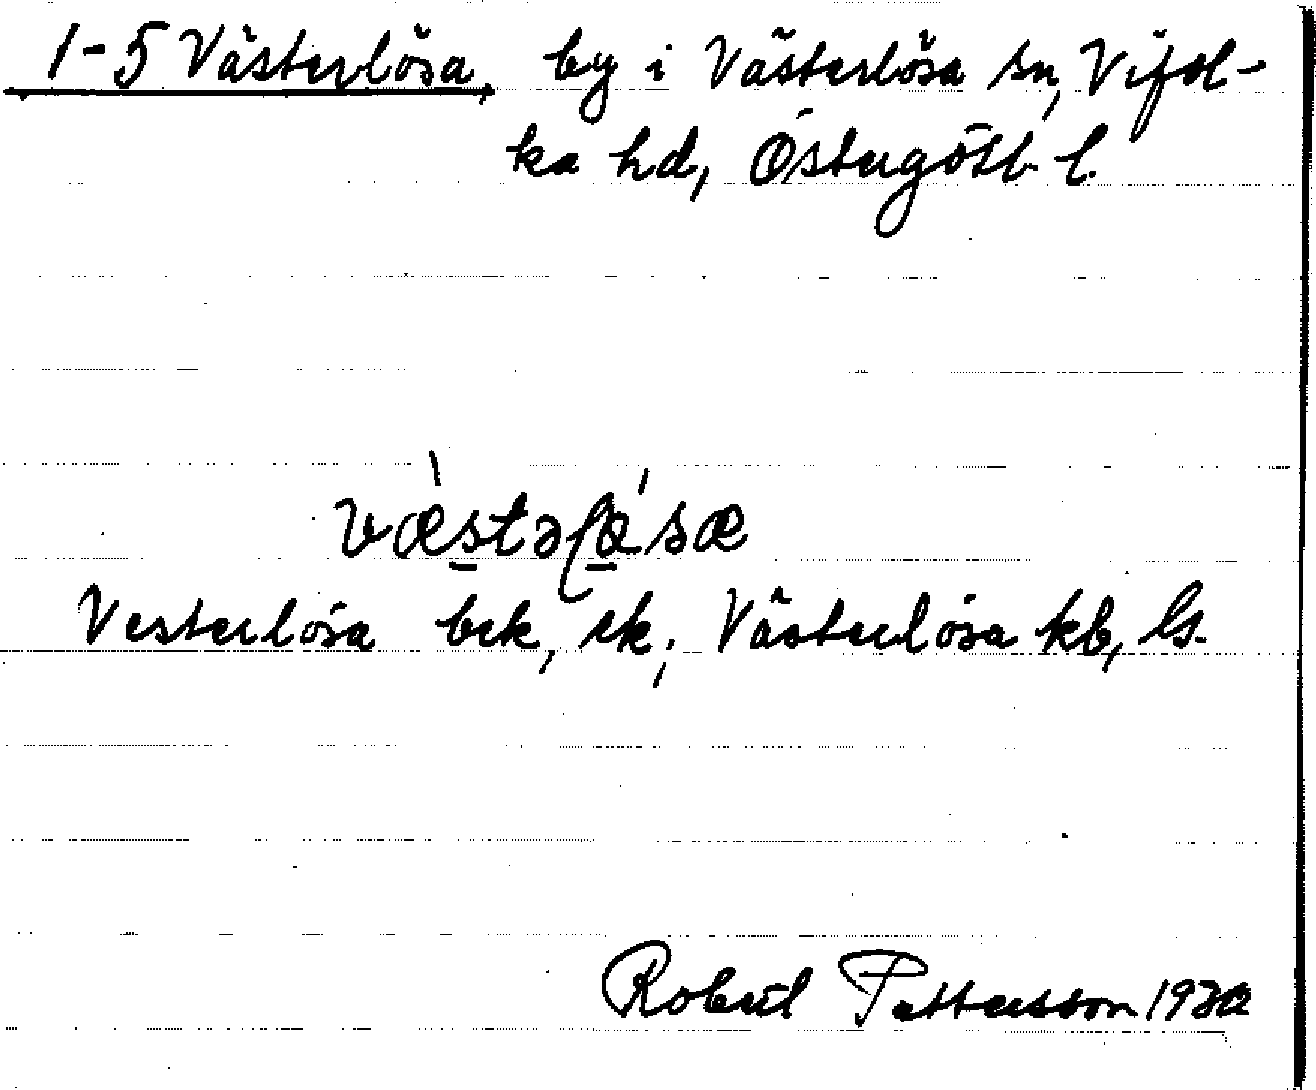 1-5 Västerlösa, by i Västerlösa sn, Vifol-
ka hd, Östergötl. l.
Vesterlösa bek, rk; Västerlösa kb, ls.
Robert Pettersson 1930